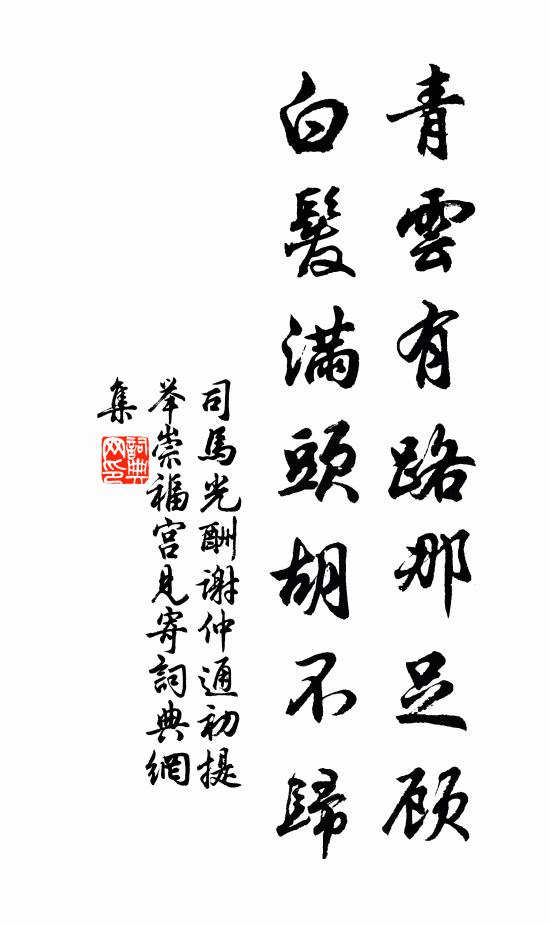 青雲有路那足顾
白髮滿頭胡不歸
司馬光酬谢仲通初提
举崇福宫見寄詞典網
集
詞典
网印